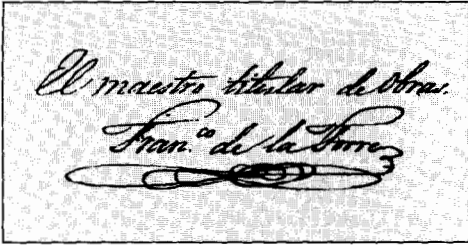 El maestro titular de Obras.
Fran.co de la Torre